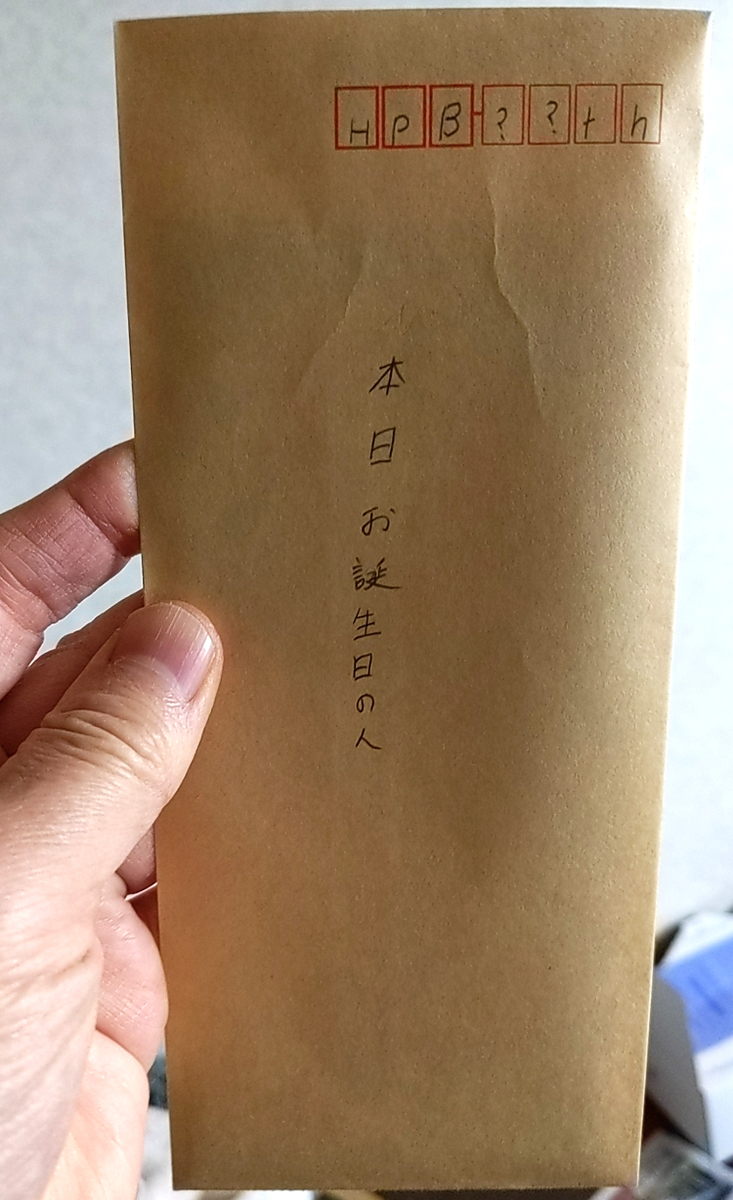 HPB-??th
本日お誕生日の人